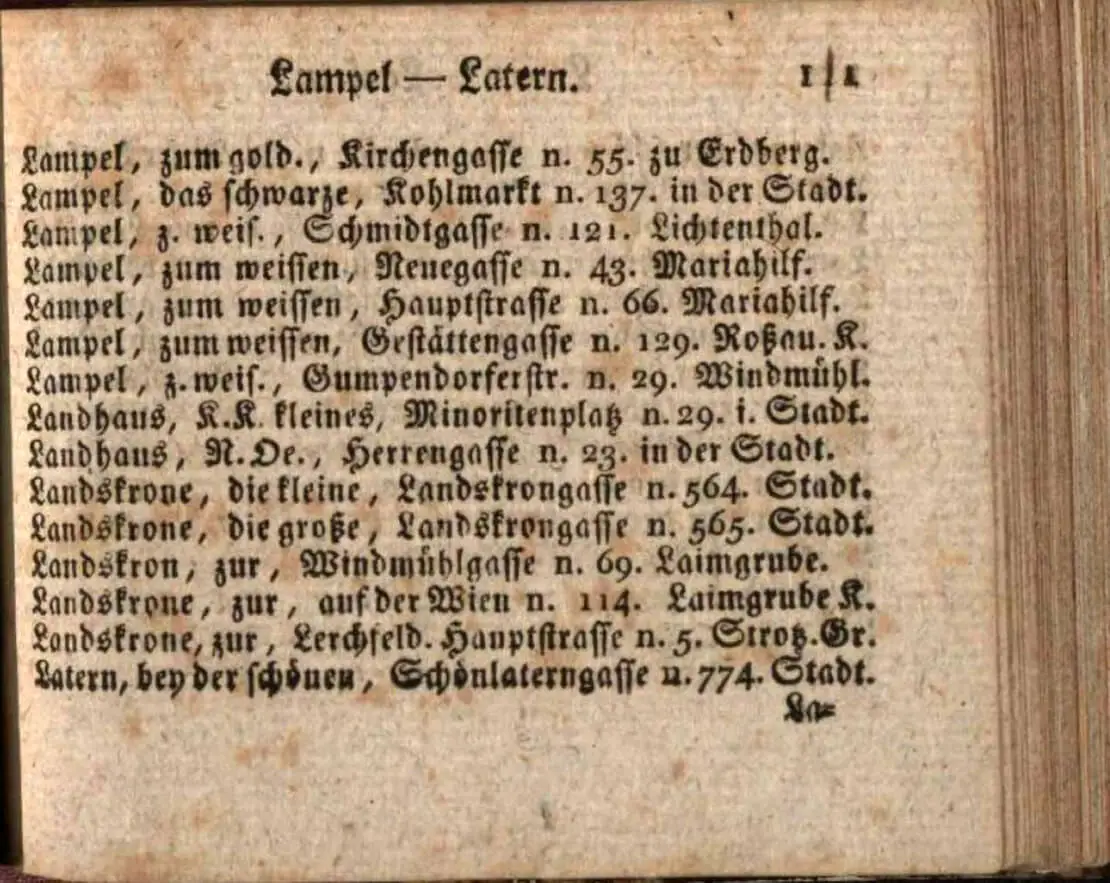 Lampel — Latern. 111
Lampel, zum gold., Kirchengasse n. 55. zu Erdberg.
Lampel, das schwarze, Kohlmarkt n. 137. in der Stadt.
Lampel, z. weis., Schmidtgasse n. 121. Lichtenthal.
Lampel, zum weissen, Neuegasse n. 43. Mariahilf.
Lampel, zum weissen, Hauptstrasse n. 66. Mariahilf.
Lampel, zum weissen, Gestättengasse n. 129. Roßau. K.
Lampel, z. weis., Gumpendorferstr. n. 29. Windmühl.
Landhaus, K.K. kleines, Minoritenplatz n. 29. i. Stadt.
Landhaus, N. Oe., Herrengasse n. 23. in der Stadt.
Landskrone, die kleine, Landskrongasse n. 564. Stadt.
Landskrone, die große, Landskrongasse n. 565. Stadt.
Landskron, zur, Windmühlgasse n. 69. Laimgrube.
Landskrone, zur, auf der Wien n. 114. Laimgrube K.
Landskrone, zur, Lerchfeld. Hauptstrasse n. 5. Strotz. Gr.
Latern, bey der schönen, Schönlaterngasse n. 774. Stadt.
La-